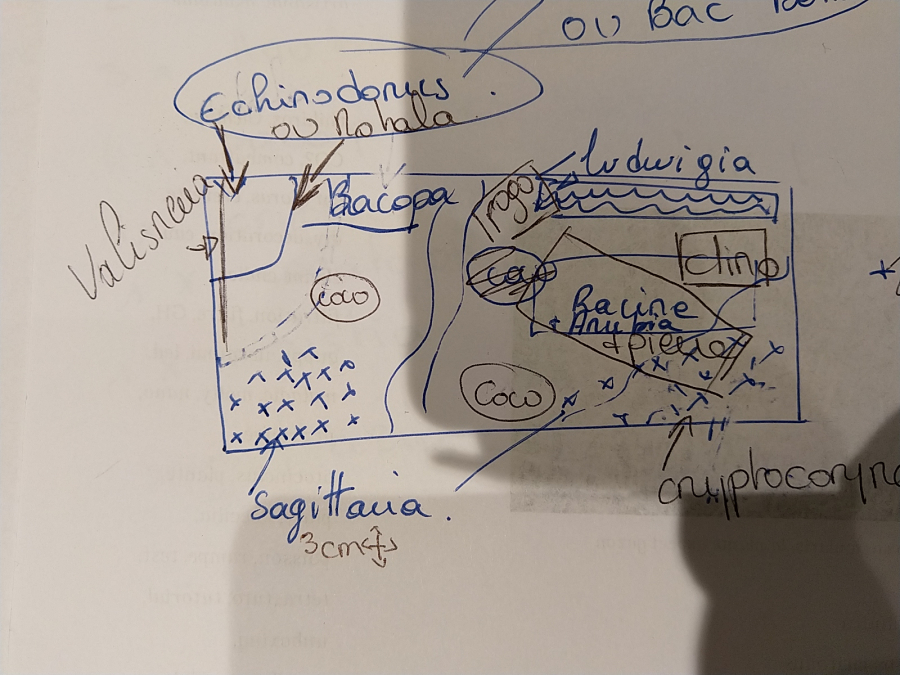 ou Bac
Echinodorus.
ou Rohala
Valisneria
Bacopa
ludwigia
coco
coco
clino
Racine
+ Anubia
+ pierre
Coco
Sagittaria.
3cm
cryptocoryne